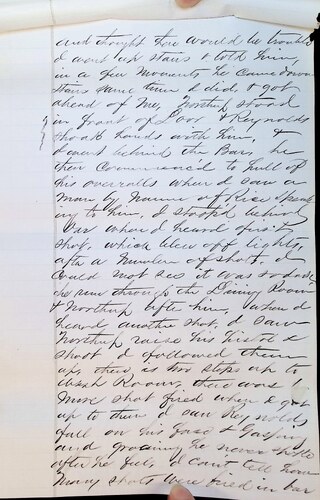 and thought there would be trouble
I went up stairs & told him,
in a few moments he came down
stairs same time I did & got
ahead of me, Northup stood
in front of Door & Reynolds
shook hands with him, &
I went behind the Bar, he
then Commenc'd to pull off
his overalls when I saw a
man by name of Price speak
ing to him, I stoop'd behind
Bar when I heard first
shot, which blew off lights,
after a Number of shots, I
could not see it was so dark,
he run through the Dining Room
& Northup after him, when I
heard another shot, I saw
Northup raise his Pistol &
shoot I followed them
up, there is two steps up to
Wash Room, there was 1
more shot fired when I got
up to them I saw Reynolds
fall on his face & Gasping
and groaning he never spoke
after he fell, I can't tell how
many shots were fired in bar